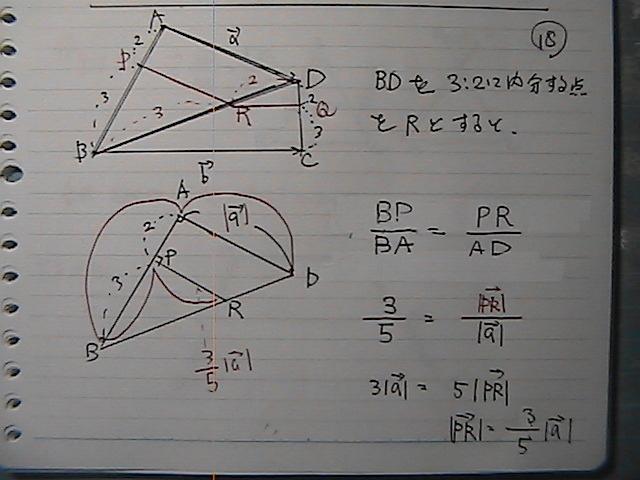 18
A
2
P
3
B
a
2
D
3
R
2
Q
3
C
b
BDを3:2に内分する点
をRとすると、
A
2
|a|
P
3
D
R
B
3/5 |a|
BP/BA = PR/AD
3/5 = |PR|/|a|
3|a| = 5|PR|
|PR| = 3/5 |a|